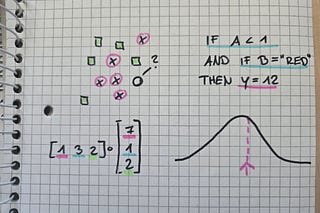 x
x
x x
x
?
IF A < 1
AND IF B = "RED"
THEN Y = 12
[1 3 2] • [7
1
2]